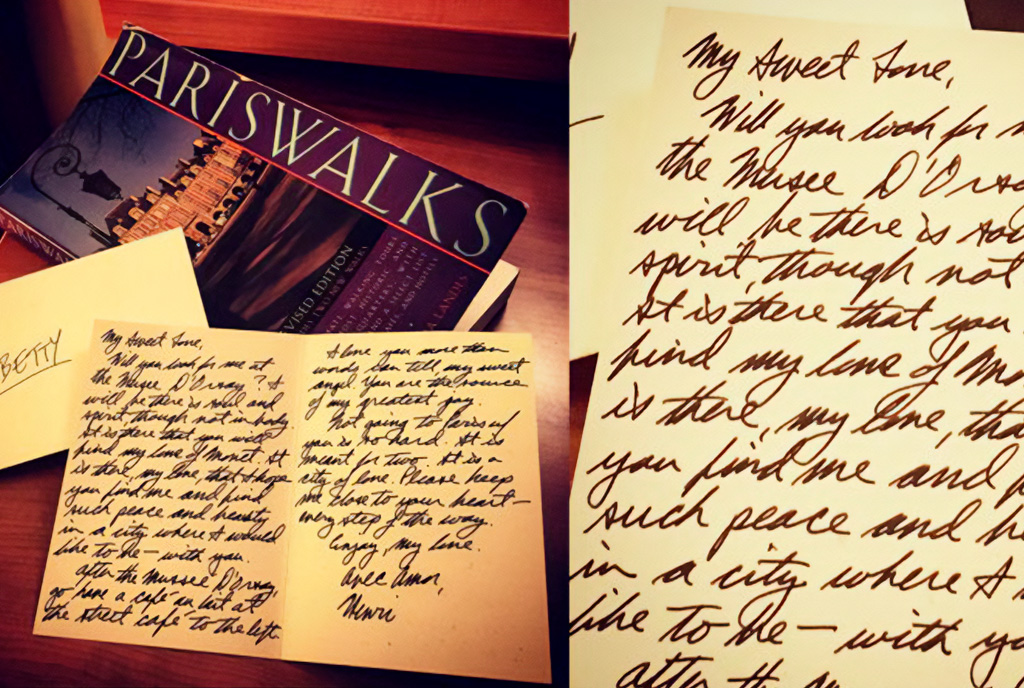 PARISWALKS
PARISWALKS
REVISED EDITION
TWO NEW WALKS
WALKING TOURS
HISTORIC
QUARTERS, WITH
A SELECT LIST
AND HOTELS
LANDES
BETTY
My Sweet Love,
Will you look for me at
the Musee D'Orsay? I
will be there is soul and
spirit, though not in body.
It is there that you will
find my love of Monet. It
is there, my love, that I hope
you find me and find
such peace and beauty
in a city where I would
like to be — with you.
After the Musee D'Orsay,
go have a café au lait at
the street café to the left.
I love you more than
words can tell, my sweet
angel. You are the source
of my greatest joy.
Not going to Paris w/
you is so hard. It is
meant for two. It is a
city of love. Please keep
me close to your heart —
every step of the way.
Enjoy, my love.
Avec Amor,
Henri
My Sweet Love,
Will you look for
the Musee D'Orsay
will be there is sou
spirit, though not
It is there that you
find my love of Mon
is there, my love, tha
you find me and f
such peace and be
in a city where I
like to be — with yo
After the